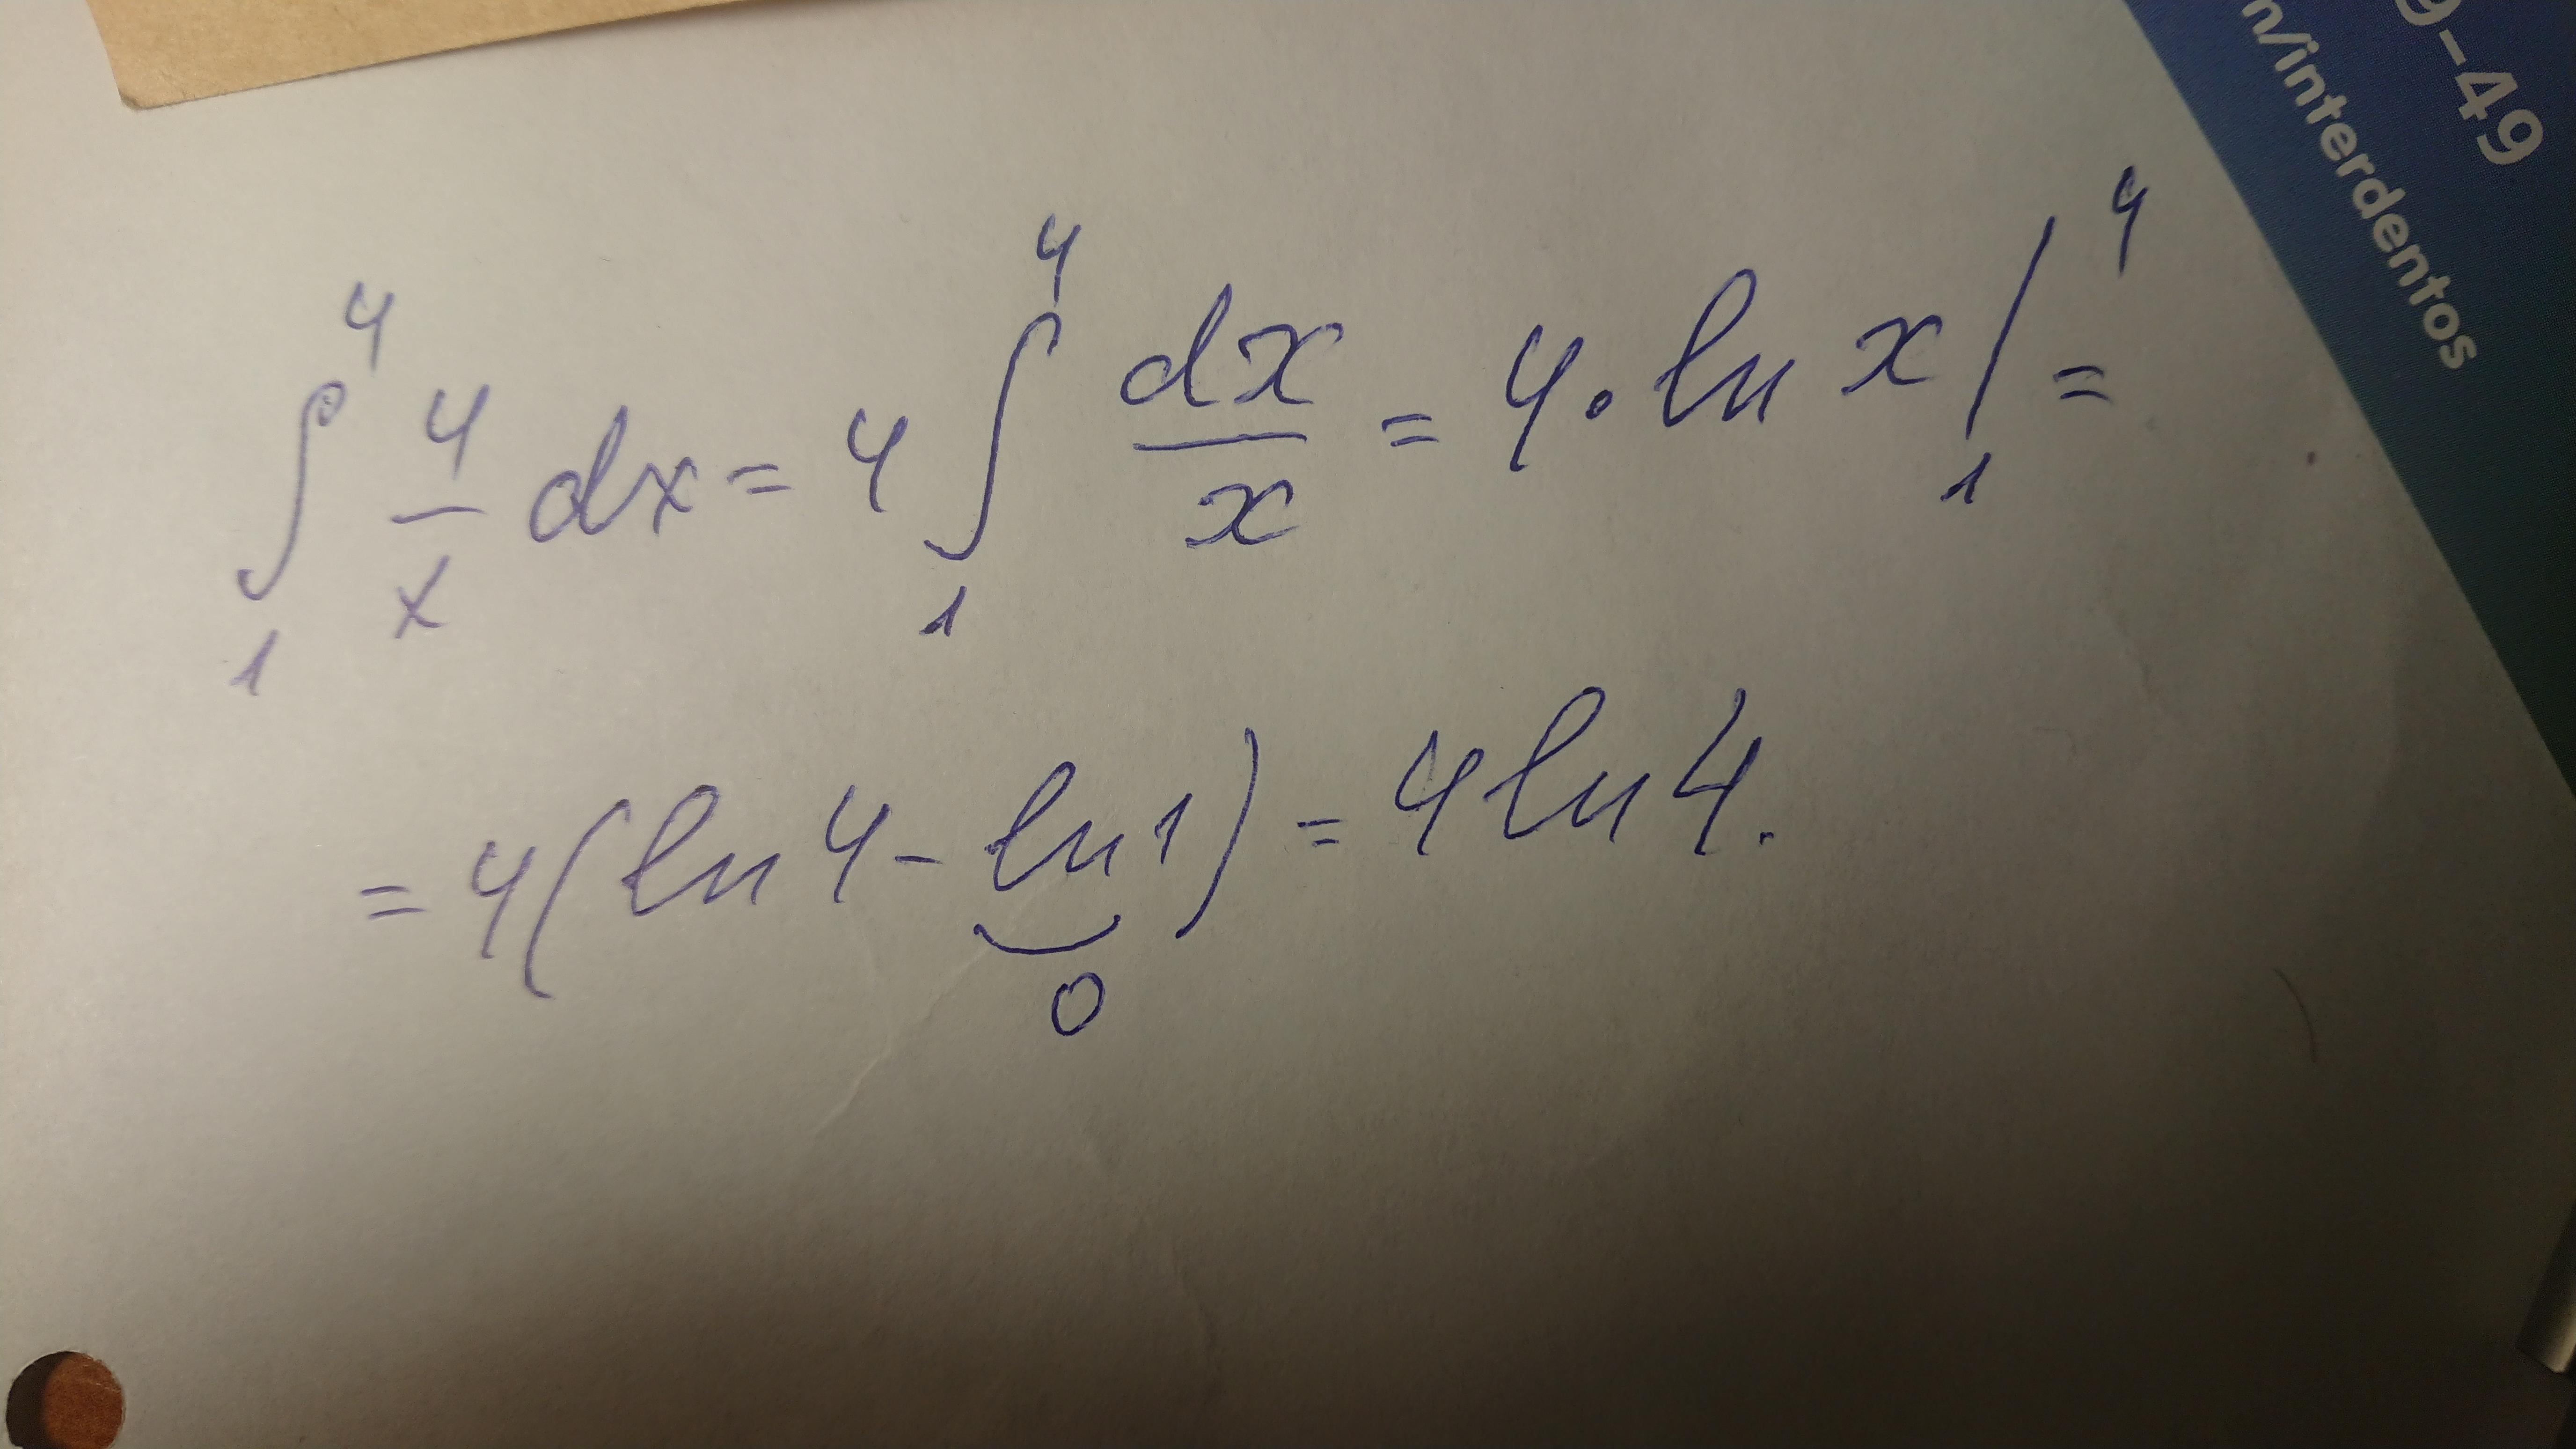 9-49
n/interdentos
∫₁⁴ 4/x dx = 4 ∫₁⁴ dx/x = 4 · ln x |₁⁴ =
= 4(ln 4 - ln 1) = 4 ln 4.
0